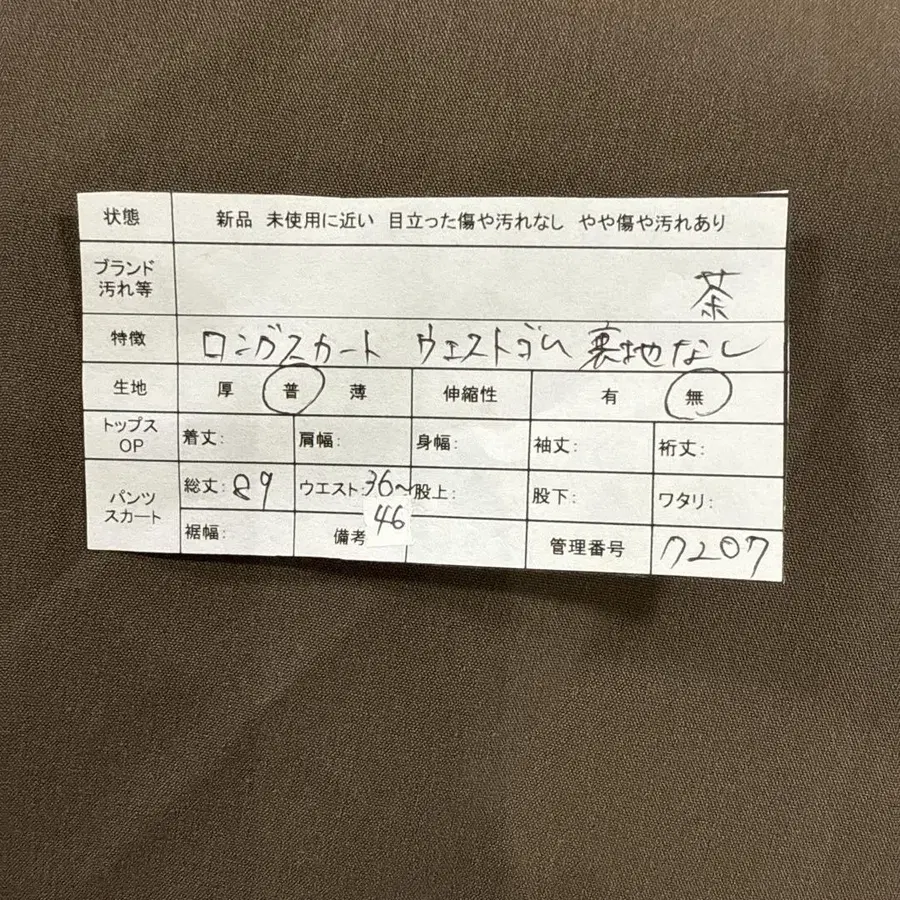 状態 新品 未使用に近い 目立った傷や汚れなし やや傷や汚れあり
ブランド
汚れ等 茶
特徴 ロングスカート ウエストゴム 裏地なし
生地 厚 普 薄 伸縮性 有 無
トップス
OP 着丈: 肩幅: 身幅: 袖丈: 裄丈:
パンツ
スカート 総丈:89 ウエスト:36〜46 股上: 股下: ワタリ:
裾幅: 備考 管理番号 7207